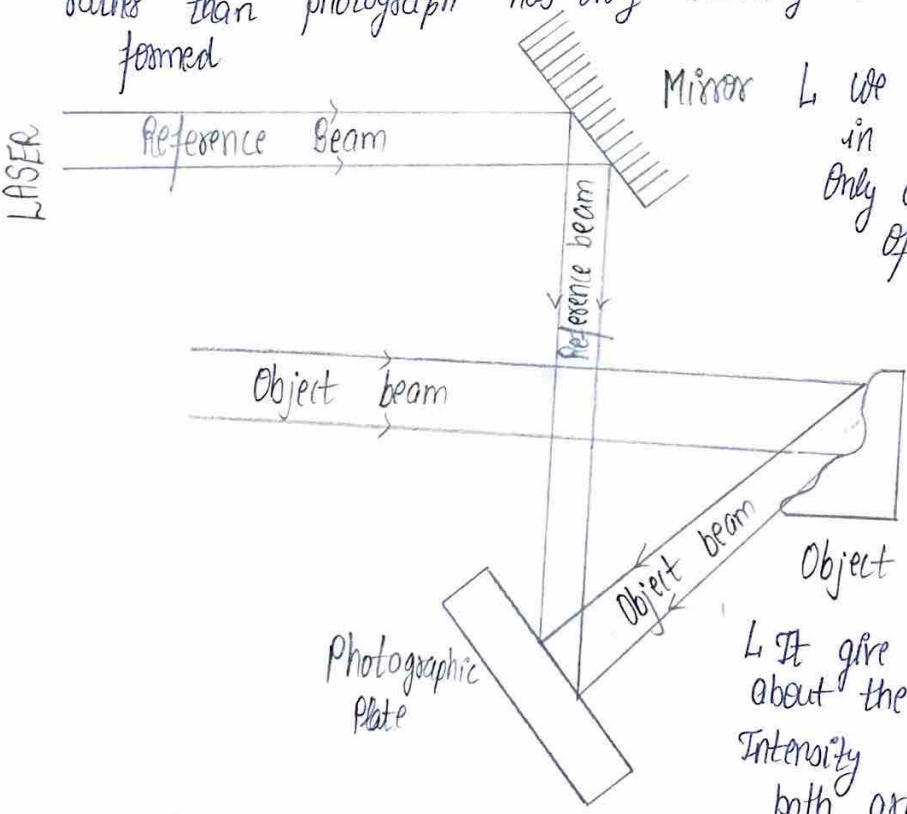 than photograph
formed
LASER
Reference Beam
Mirror
↳ We
in
Only
Of
Reference beam
Object beam
Object beam
Object
Photographic
Plate
↳ It give
about the
Intensity
both